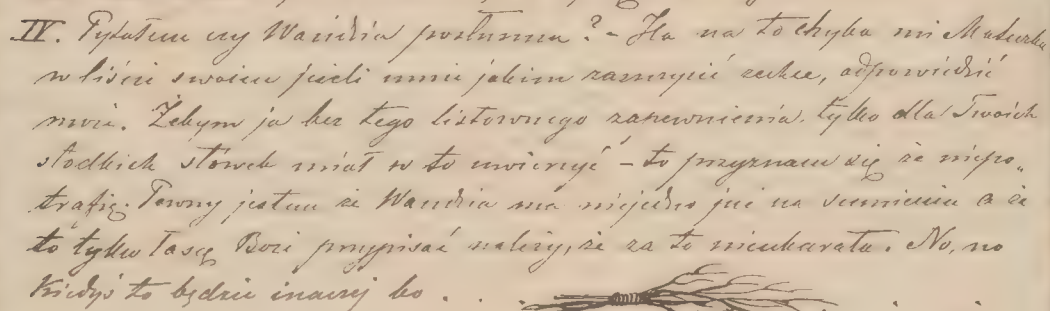 IV. Pytałem czy Wandzia posłuszna? – Ha na to chyba mi Mateczka
w liście swoim jeśli mnie jakim zaszczycić zechce, odpowiedzieć
może. Żebym ja bez tego listownego zapewnienia, tylko dla Twoich
słodkich słówek miał w to uwierzyć – to przyznam się że niepo„
trafię. Pewny jestem że Wandzia ma niejedno już na sumieniu a że
to tylko łasce Bożej przypisać należy, że za to nieukarata. No, no
Kiedyś to będzie inaczej bo . . .